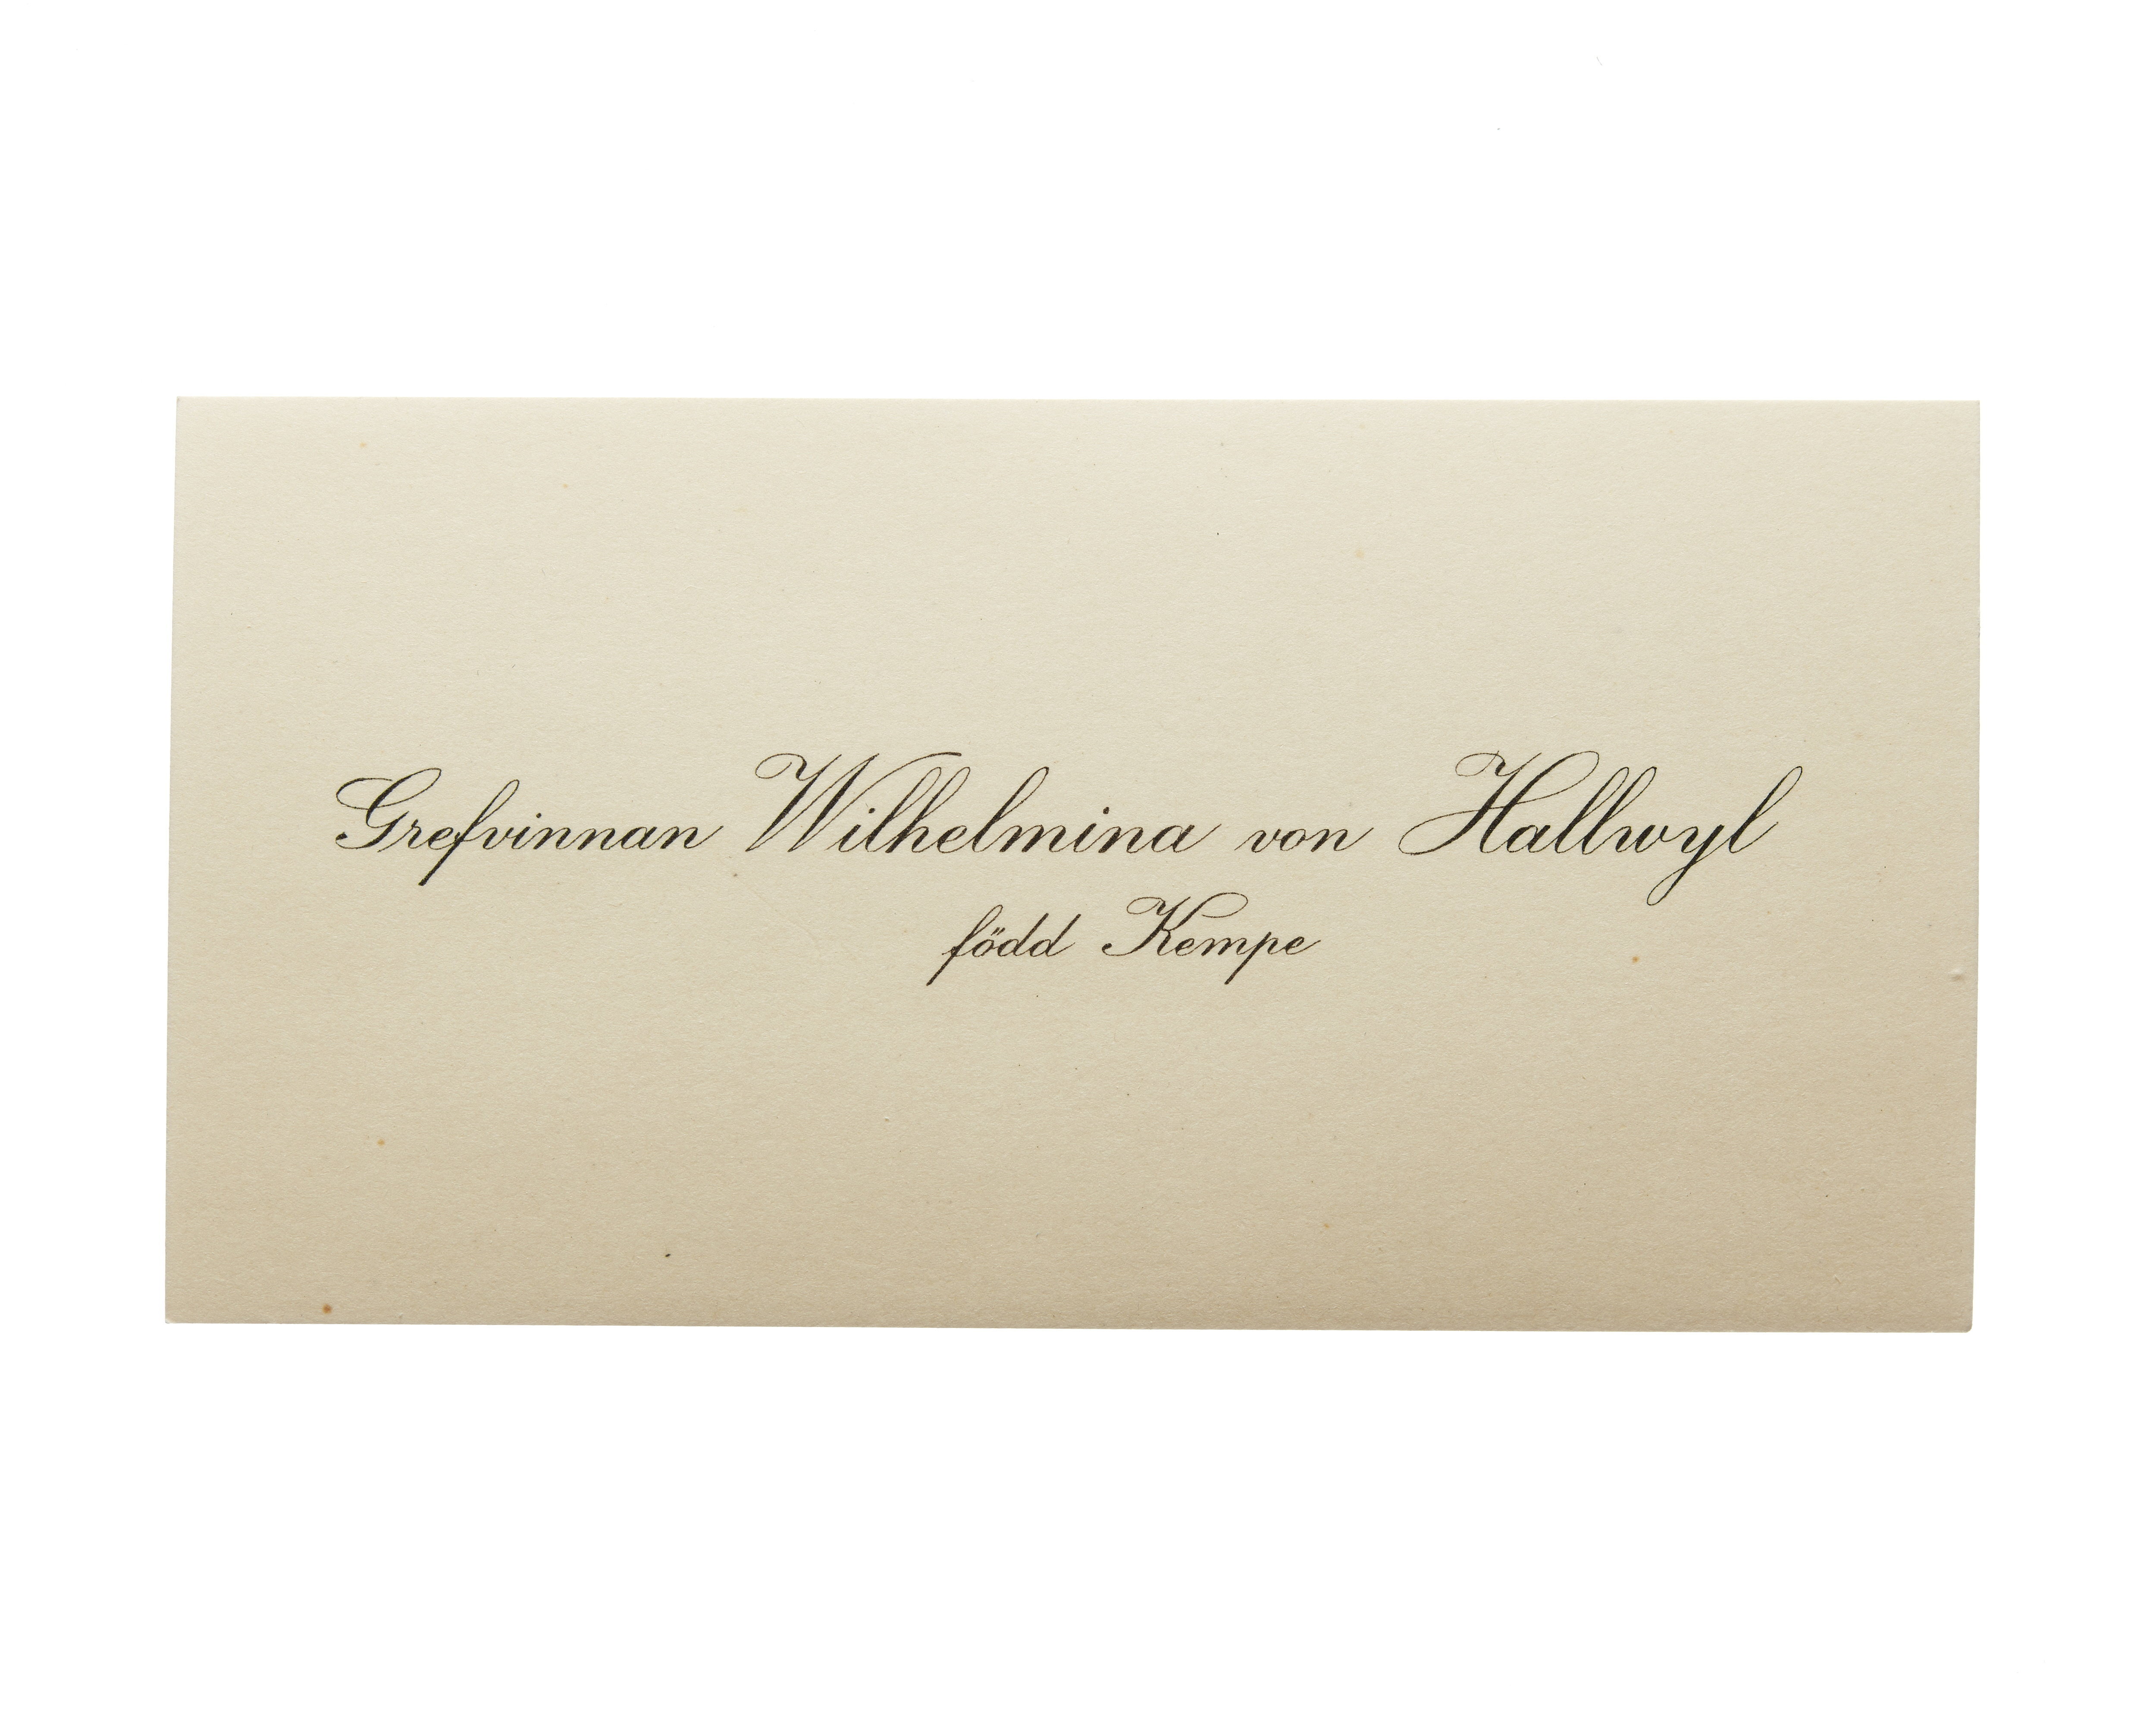 Grefvinnan Wilhelmina von Hallwyl
född Kempe